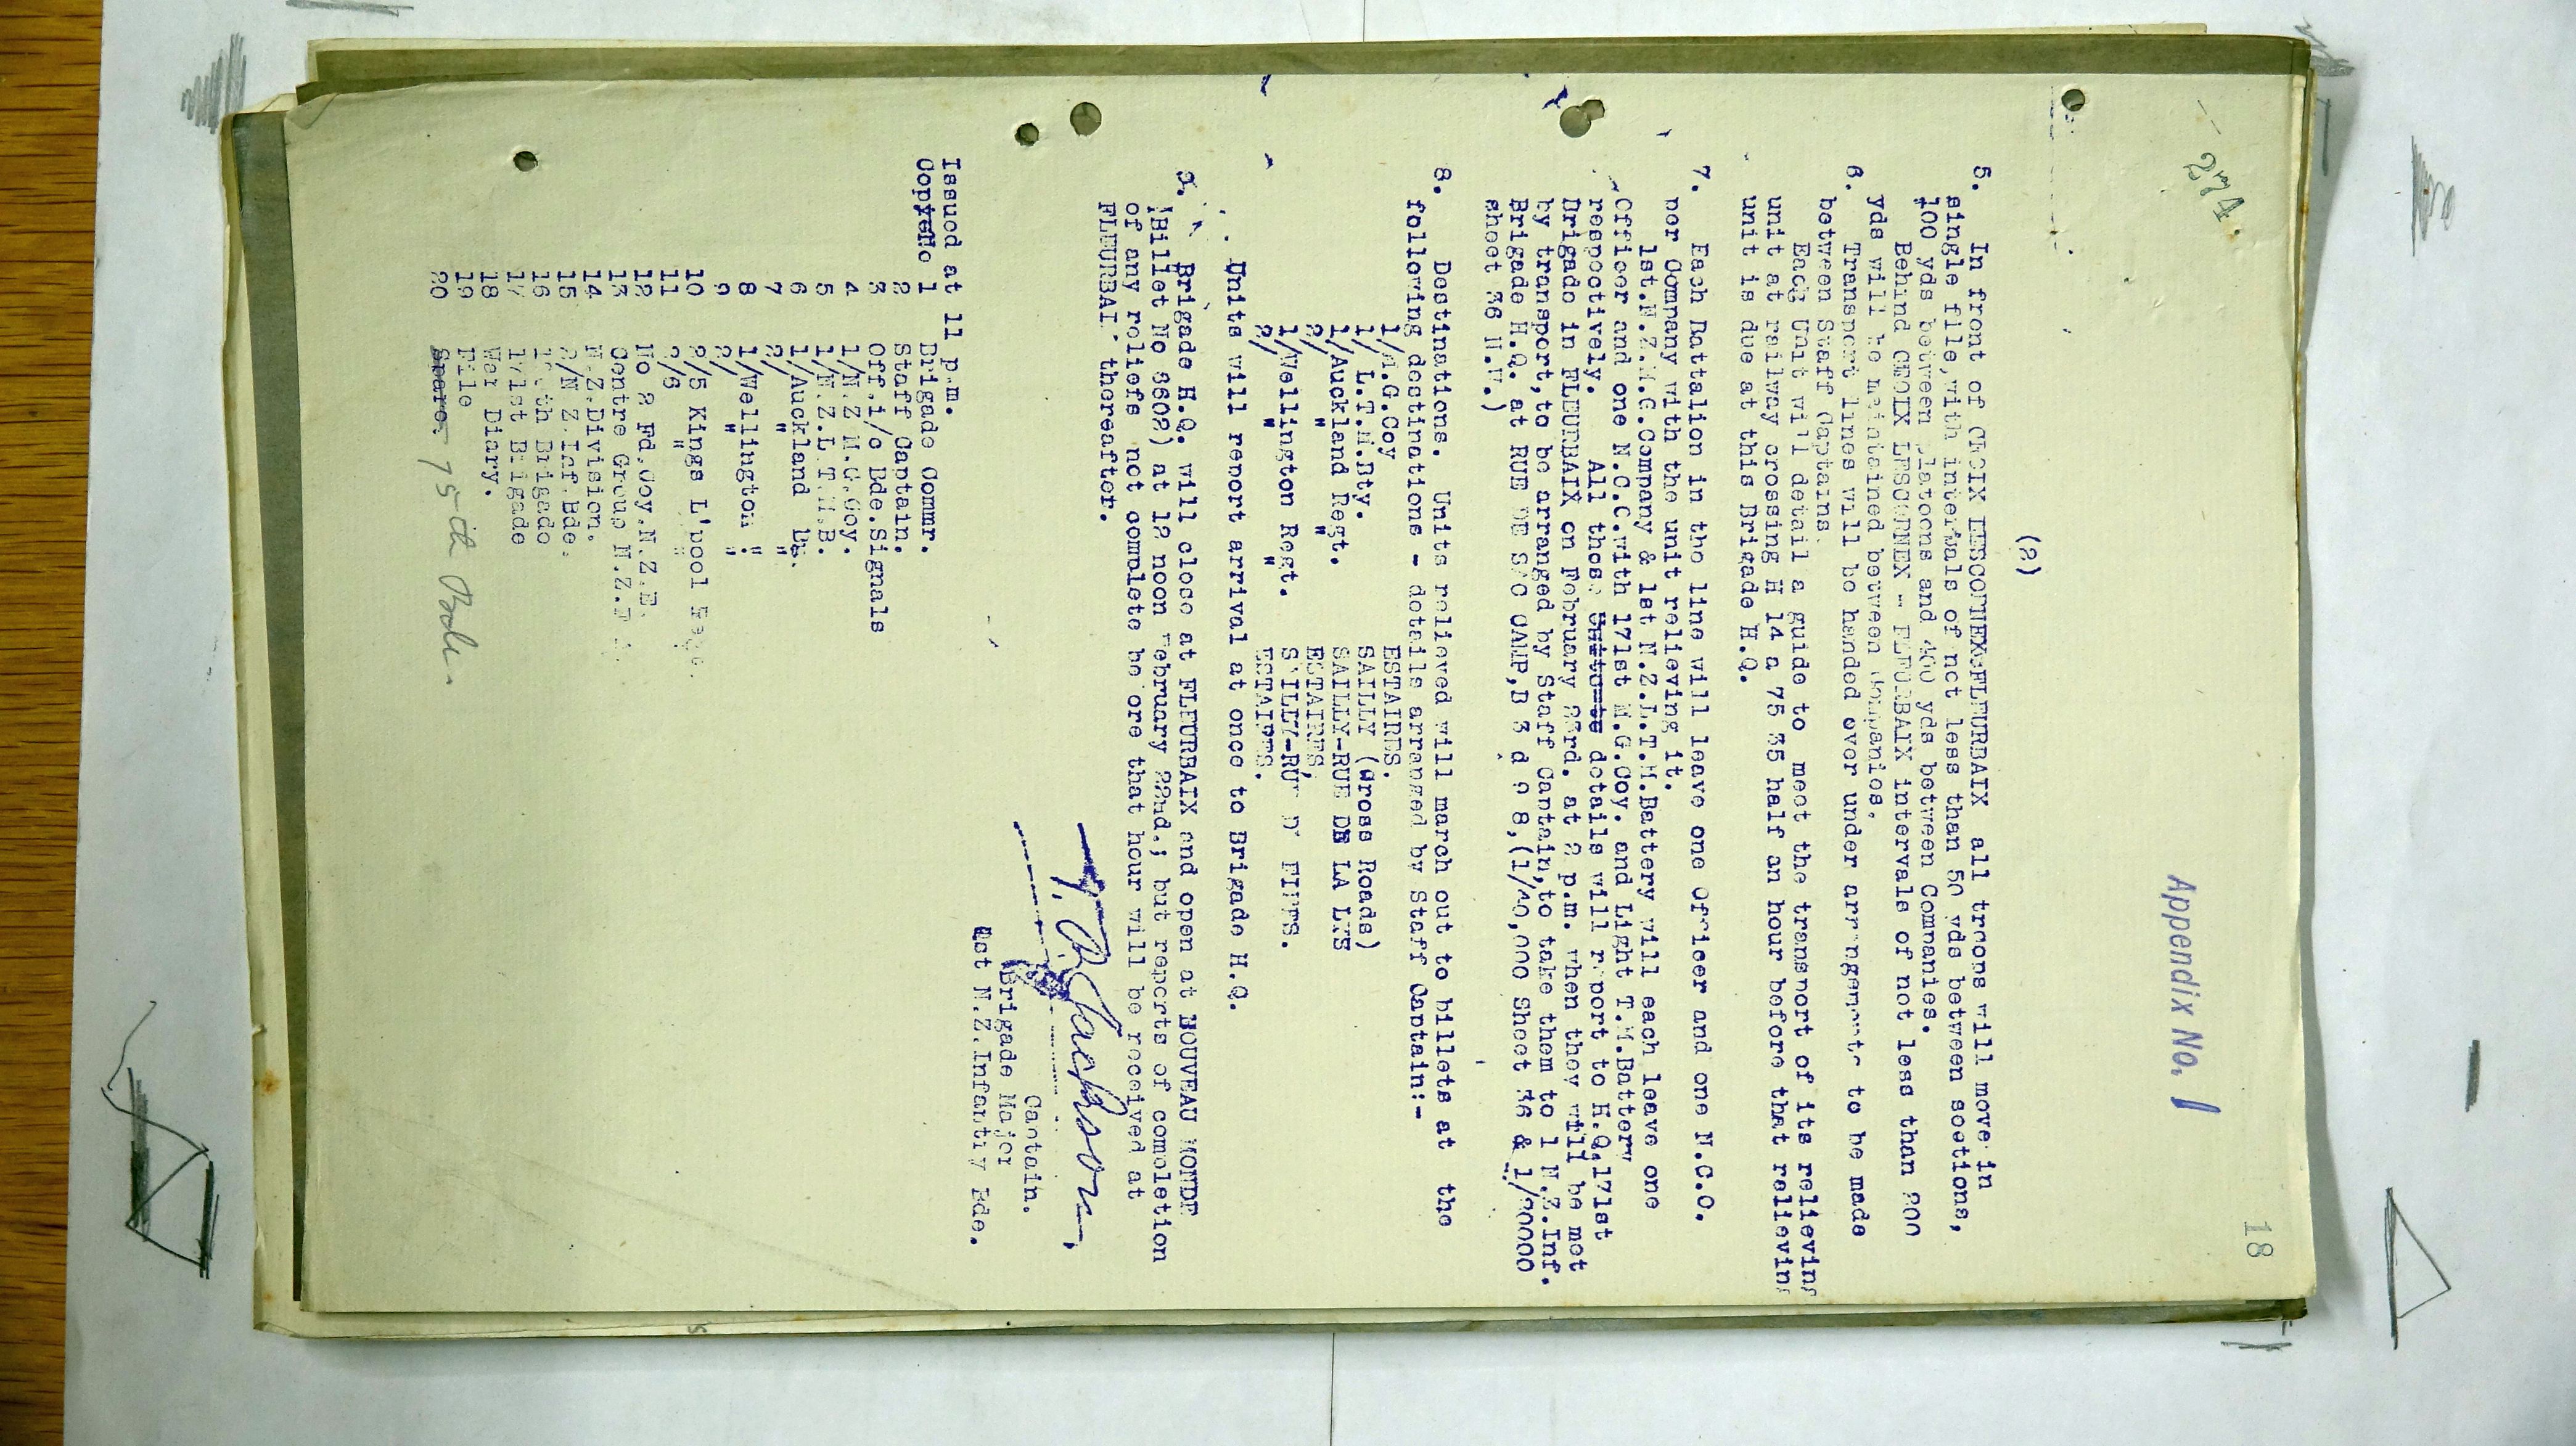 18
Appendix No. 1
(2)
5. In front of CROIX LESCORNEX-FLEURBAIX all troops will move in
single file, with intervals of not less than 50 yds between sections,
100 yds between platoons and 400 yds between Companies.
Behind CROIX LESCORNEX - FLEURBAIX intervals of not less than 200
yds will be maintained between Companies.
6. Transport lines will be handed over under arrangements to be made
between Staff Captains.
Each Unit will detail a guide to meet the transport of its relieving
unit at railway crossing H 14 a 75 35 half an hour before that relieving
unit is due at this Brigade H.Q.
7. Each Battalion in the line will leave one Officer and one N.C.O.
per Company with the unit relieving it.
1st.N.Z.M.G.Company & 1st N.Z.L.T.M.Battery will each leave one
Officer and one N.C.O. with 171st M.G.Coy. and Light T.M.Battery
respectively. All those details will report to H.Q.171st
Brigade in FLEURBAIX on February 23rd. at 2 p.m. when they will be met
by transport, to be arranged by Staff Captain, to take them to 1 N.Z.Inf.
Brigade H.Q. at RUE DE S/C CAMP, B 3 d 9 8, (1/40,000 Sheet 36 & 1/20000
sheet 36 N.W.)
8. Destinations. Units relieved will march out to billets at the
following destinations - details arranged by Staff Captain:-
1/M.G.Coy ESTAIRES.
1/L.T.M.Bty. SAILLY (Cross Roads)
1/Auckland Regt. SAILLY-RUE DE LA LYS
2/ " " ESTAIRES,
1/Wellington Regt. SAILLY-RUE D FIEFS.
2/ " " ESTAIRES.
Units will report arrival at once to Brigade H.Q.
9. Brigade H.Q. will close at FLEURBAIX and open at NOUVEAU MONDE
(Billet No 3602) at 12 noon February 22nd.; but reports of completion
of any reliefs not complete before that hour will be received at
FLEURBAIX thereafter.
Captain.
Brigade Major
1st N.Z.Infantry Bde.
Issued at 11 p.m.
Copy No 1 Brigade Commr.
2 Staff Captain.
3 Off.i/c Bde.Signals
4 1/N.Z M.G.Coy.
5 1/N.Z.L.T.M.B.
6 1/Auckland
7 2/ " "
8 1/Wellington "
9 2/ " "
10 2/5 Kings L'pool Regt.
11 2/6 "
12 No 2 Fd.Coy.N.Z.E.
13 Centre Group N.Z.F.A.
14 N.Z.Division.
15 2/N.Z.Inf.Bde.
16 Brigade
17 171st Brigade
18 War Diary.
19 File
20 Spare. 75th Bde.